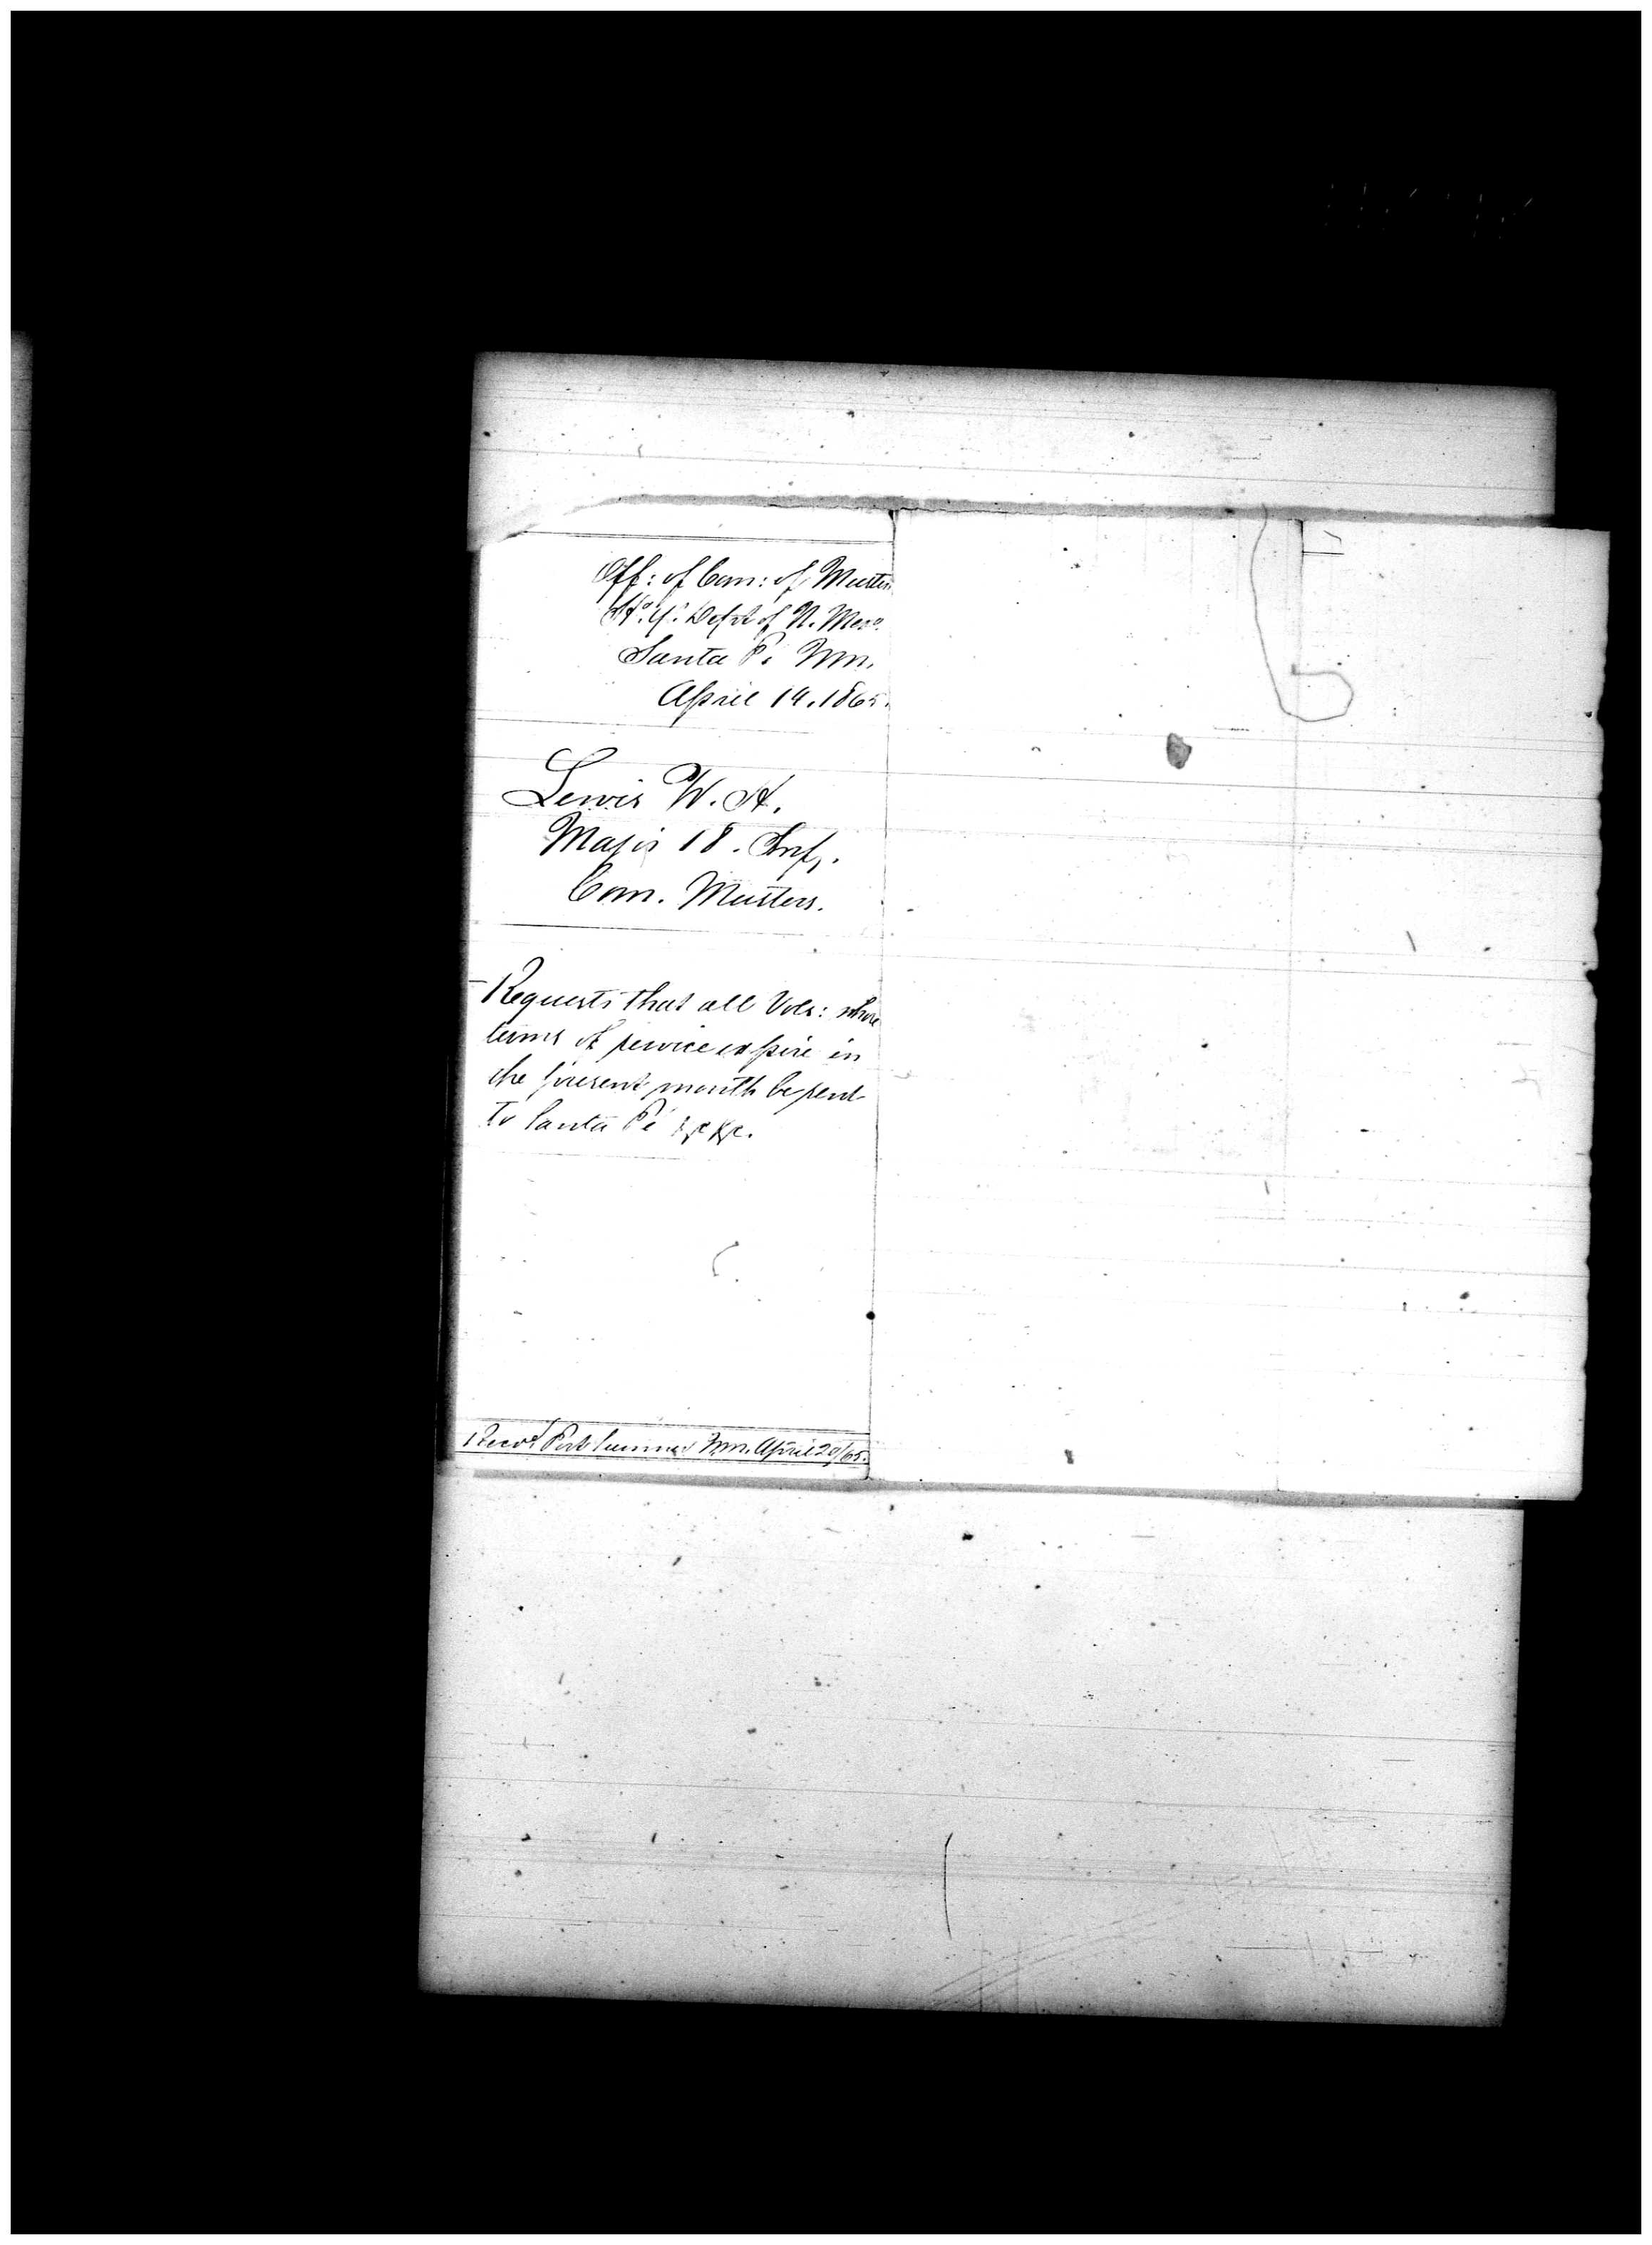 Off: of Com: of Musters
Hd. Qr. Dept of N. Mexo.
Santa Fé N.M.
April 14. 1865.
Lewis W. H.
Major 18. Inf.
Com. Musters.
Requests that all Vols: whose
terms of service expire in
the present month be sent
to Santa Fé &c &c.
Recd Fort Sumner N.M. April 20/65.